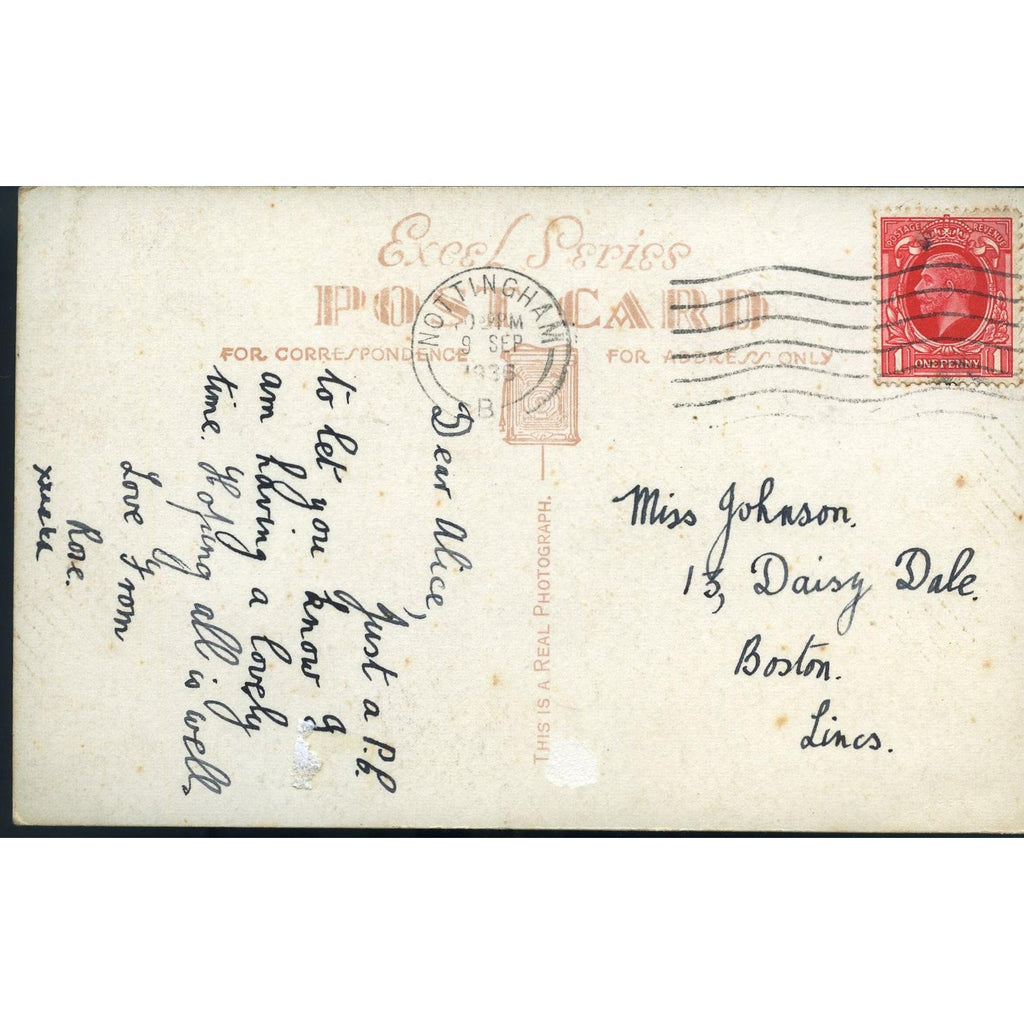 Excel Series
POST CARD
FOR CORRESPONDENCE
FOR ADDRESS ONLY
NOTTINGHAM
PM
9 SEP
1936
B
POSTAGE REVENUE
1 ONE PENNY 1
THIS IS A REAL PHOTOGRAPH.
Dear Alice,
Just a P.C.
to let you know I
am having a lovely
time. Hoping all is well
Love From
Rose.
Miss Johnson.
13, Daisy Dale.
Boston.
Lincs.